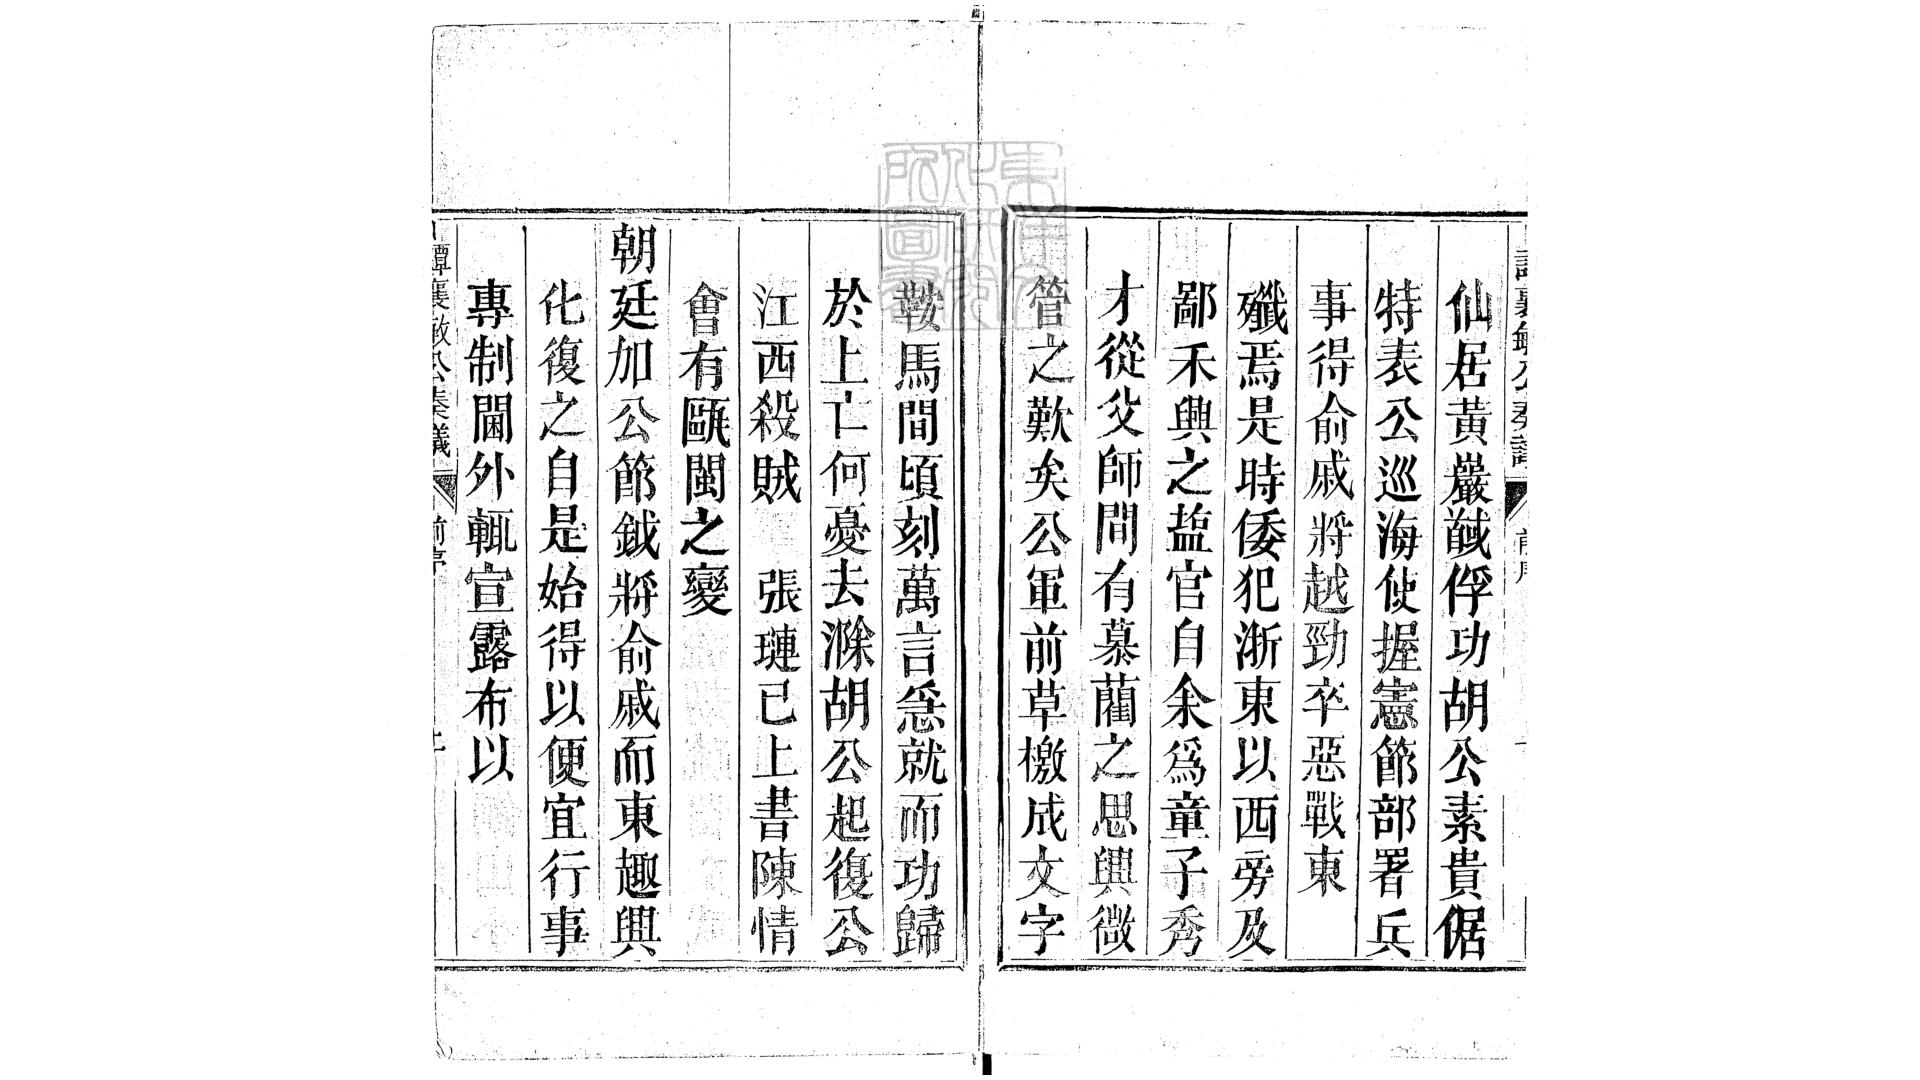 仙居黃嚴馘俘功胡公素貴倨
特表公巡海使握憲節部署兵
事得俞戚將越勁卒惡戰東
殲焉是時倭犯浙東以西旁及
鄙禾興之盐官自余爲童子秀
才從父師間有慕藺之思興微
管之歎矣公軍前草檄成文字
鞍馬間頃刻萬言㤂就而功歸
於上亡何憂去滁胡公起復公
江西殺賊 張璉已上書陳情
會有甌閩之變
朝廷加公節鉞將俞戚而東趣興
化復之自是始得以便宜行事
專制閫外輒宣露布以
譚襄敏公奏議 前序